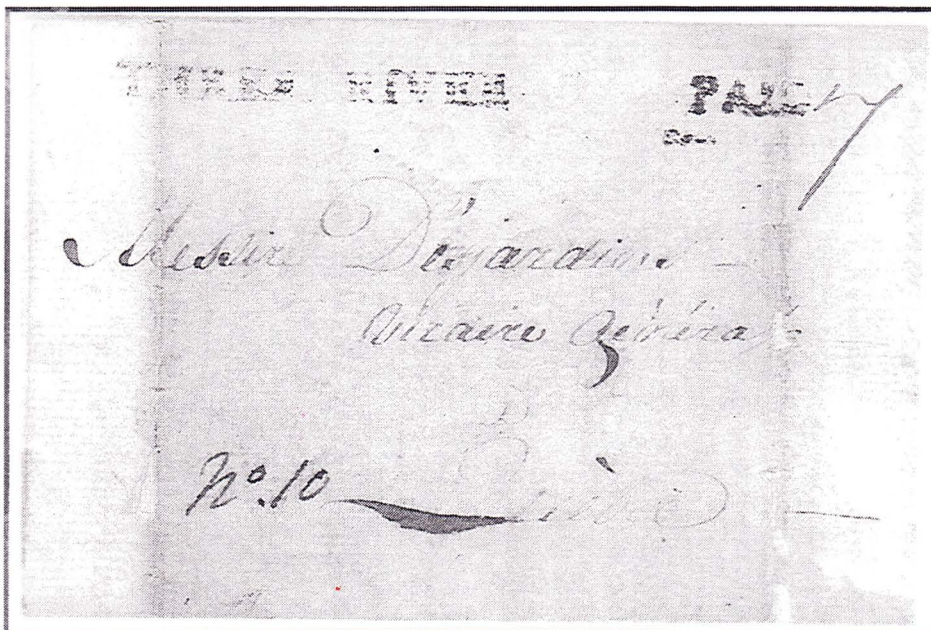 THREE RIVER PAID 7
Messire Déjardins
Vicaire Général
Nº. 10